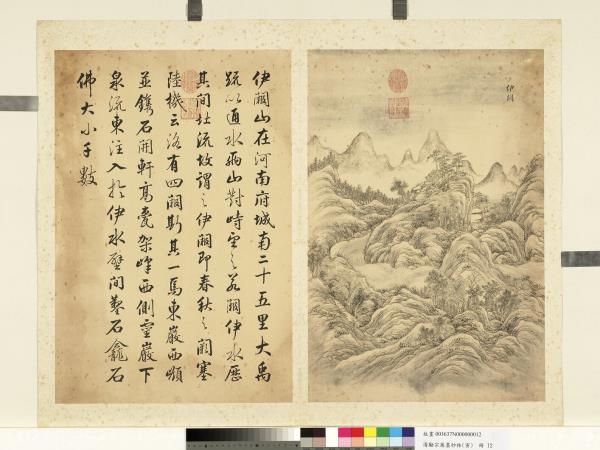 伊闕
伊闕山在河南府城南二十五里大禹
疏以通水兩山對峙望之若闕伊水歷
其間北流故謂之伊闕即春秋之闕塞
陸機云洛有四闕斯其一焉東巖西嶺
並鐫石開軒高甍架峰西側靈巖下
泉流東注入於伊水壁間鑿石龕石
佛大小千數
故畫 003637N000000012